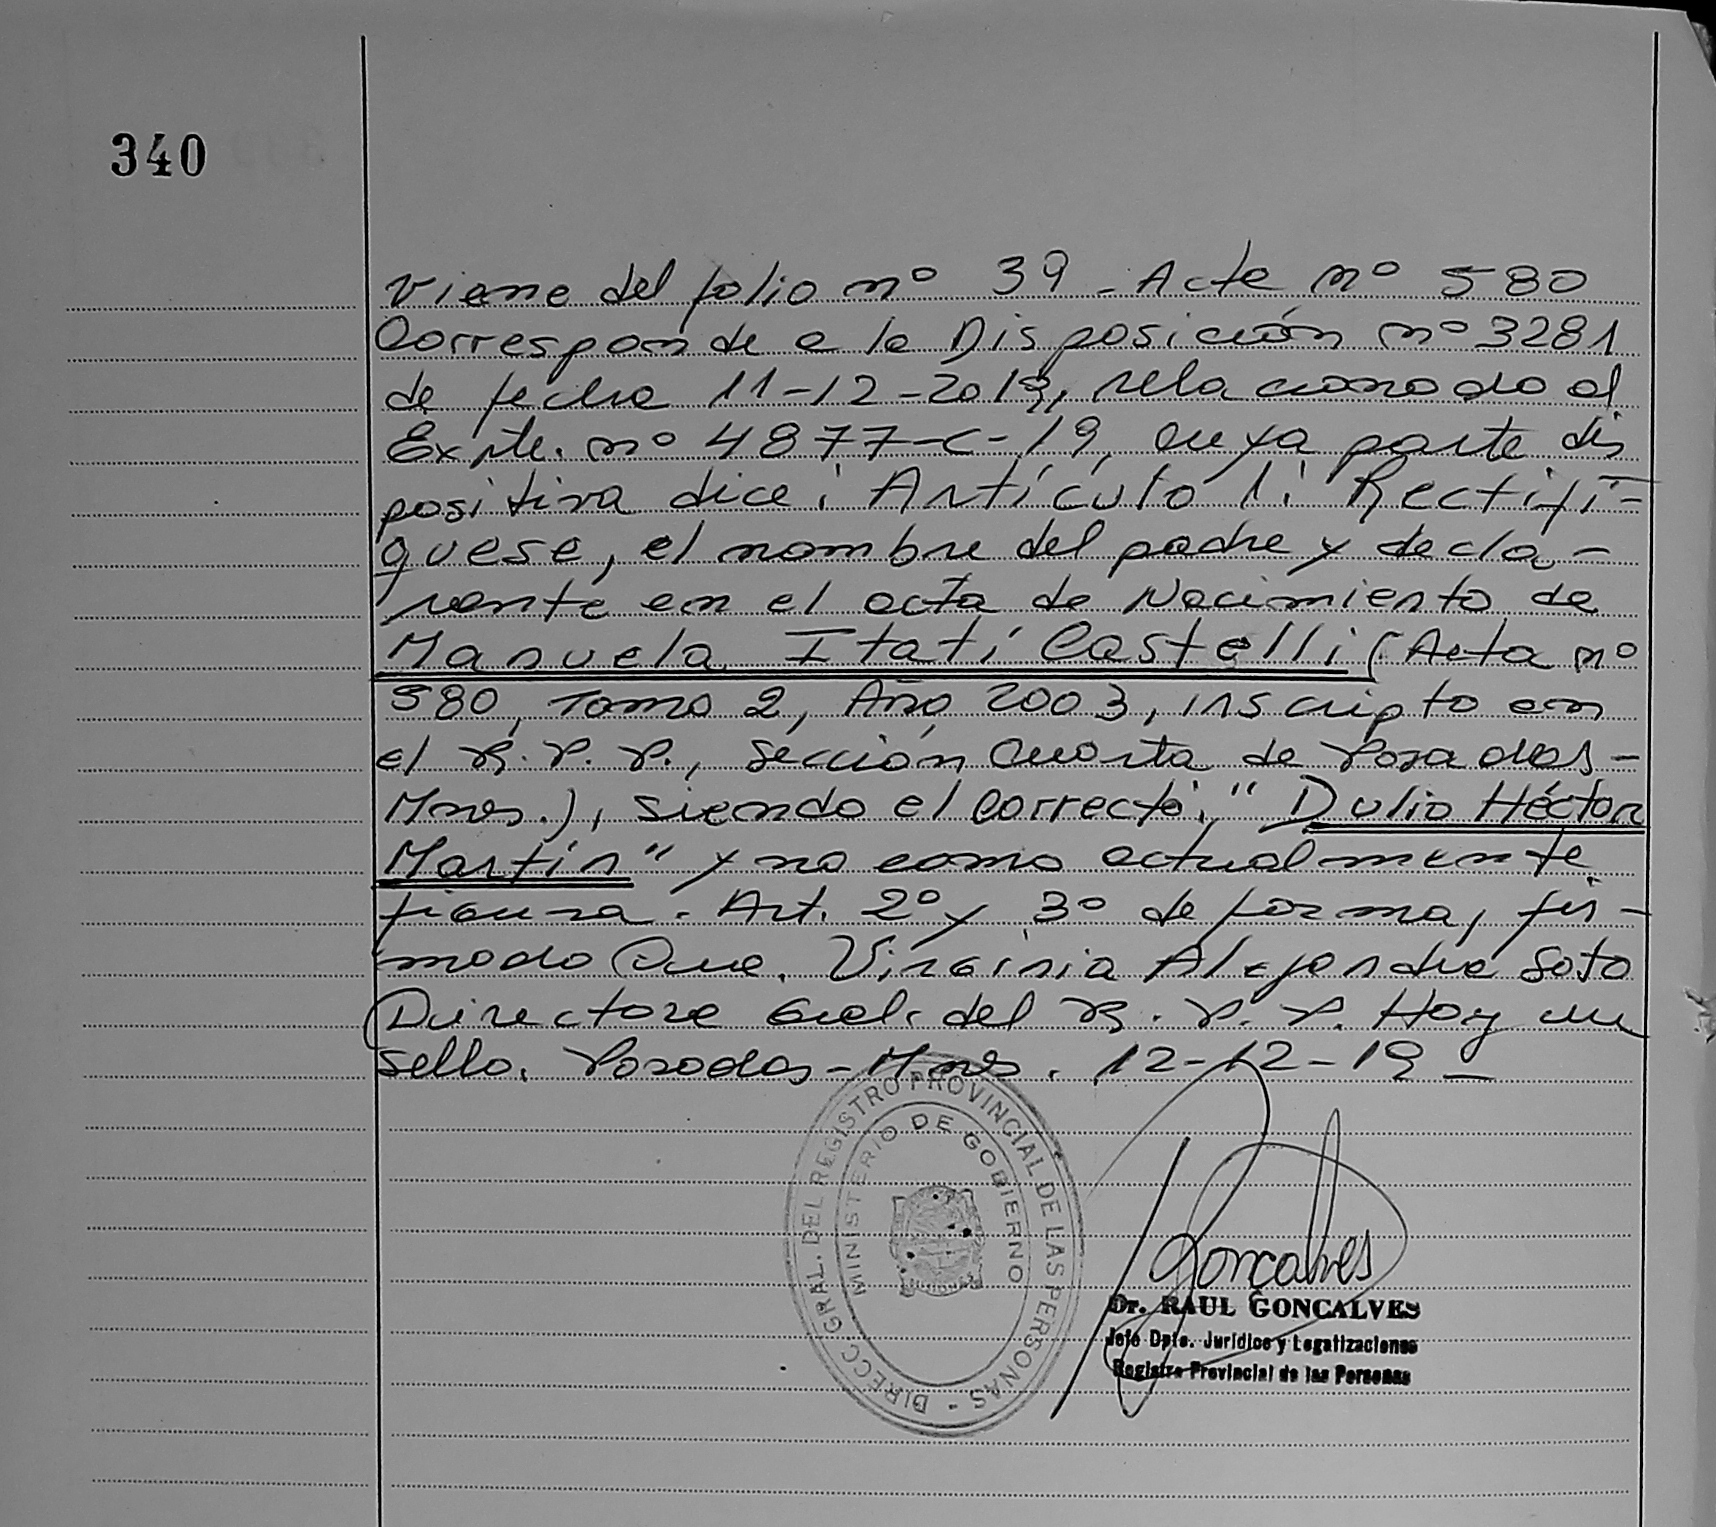 340
Viene del folio nº 39 - Acta nº 580
Corresponde a la Disposición nº 3281
de fecha 11-12-2019, relacionado al
Expte. nº 4877-C-19, cuya parte dis
positiva dice: Artículo 1: Rectifí-
quese, el nombre del padre y decla-
rante en el acta de Nacimiento de
Manuela Itatí Castelli (Acta nº
580, Tomo 2, Año 2003, inscripto en
el R.P.P., Sección Cuarta de Posadas-
Mnes.), siendo el correcto: "Dulio Héctor
Martín" y no como actualmente
figura. Art. 2º y 3º de forma, fir-
mado Dra. Virginia Alejandra Soto
Directora Gral. del R.P.P. Hay un
sello. Posadas-Mnes. 12-12-19-
DIRECC. GRAL. DEL REGISTRO PROVINCIAL DE LAS PERSONAS -
MINISTERIO DE GOBIERNO
Gonçalves
Dr. RAUL GONCALVES
Jefe Dpto. Jurídico y Legalizaciones
Registro Provincial de las Personas